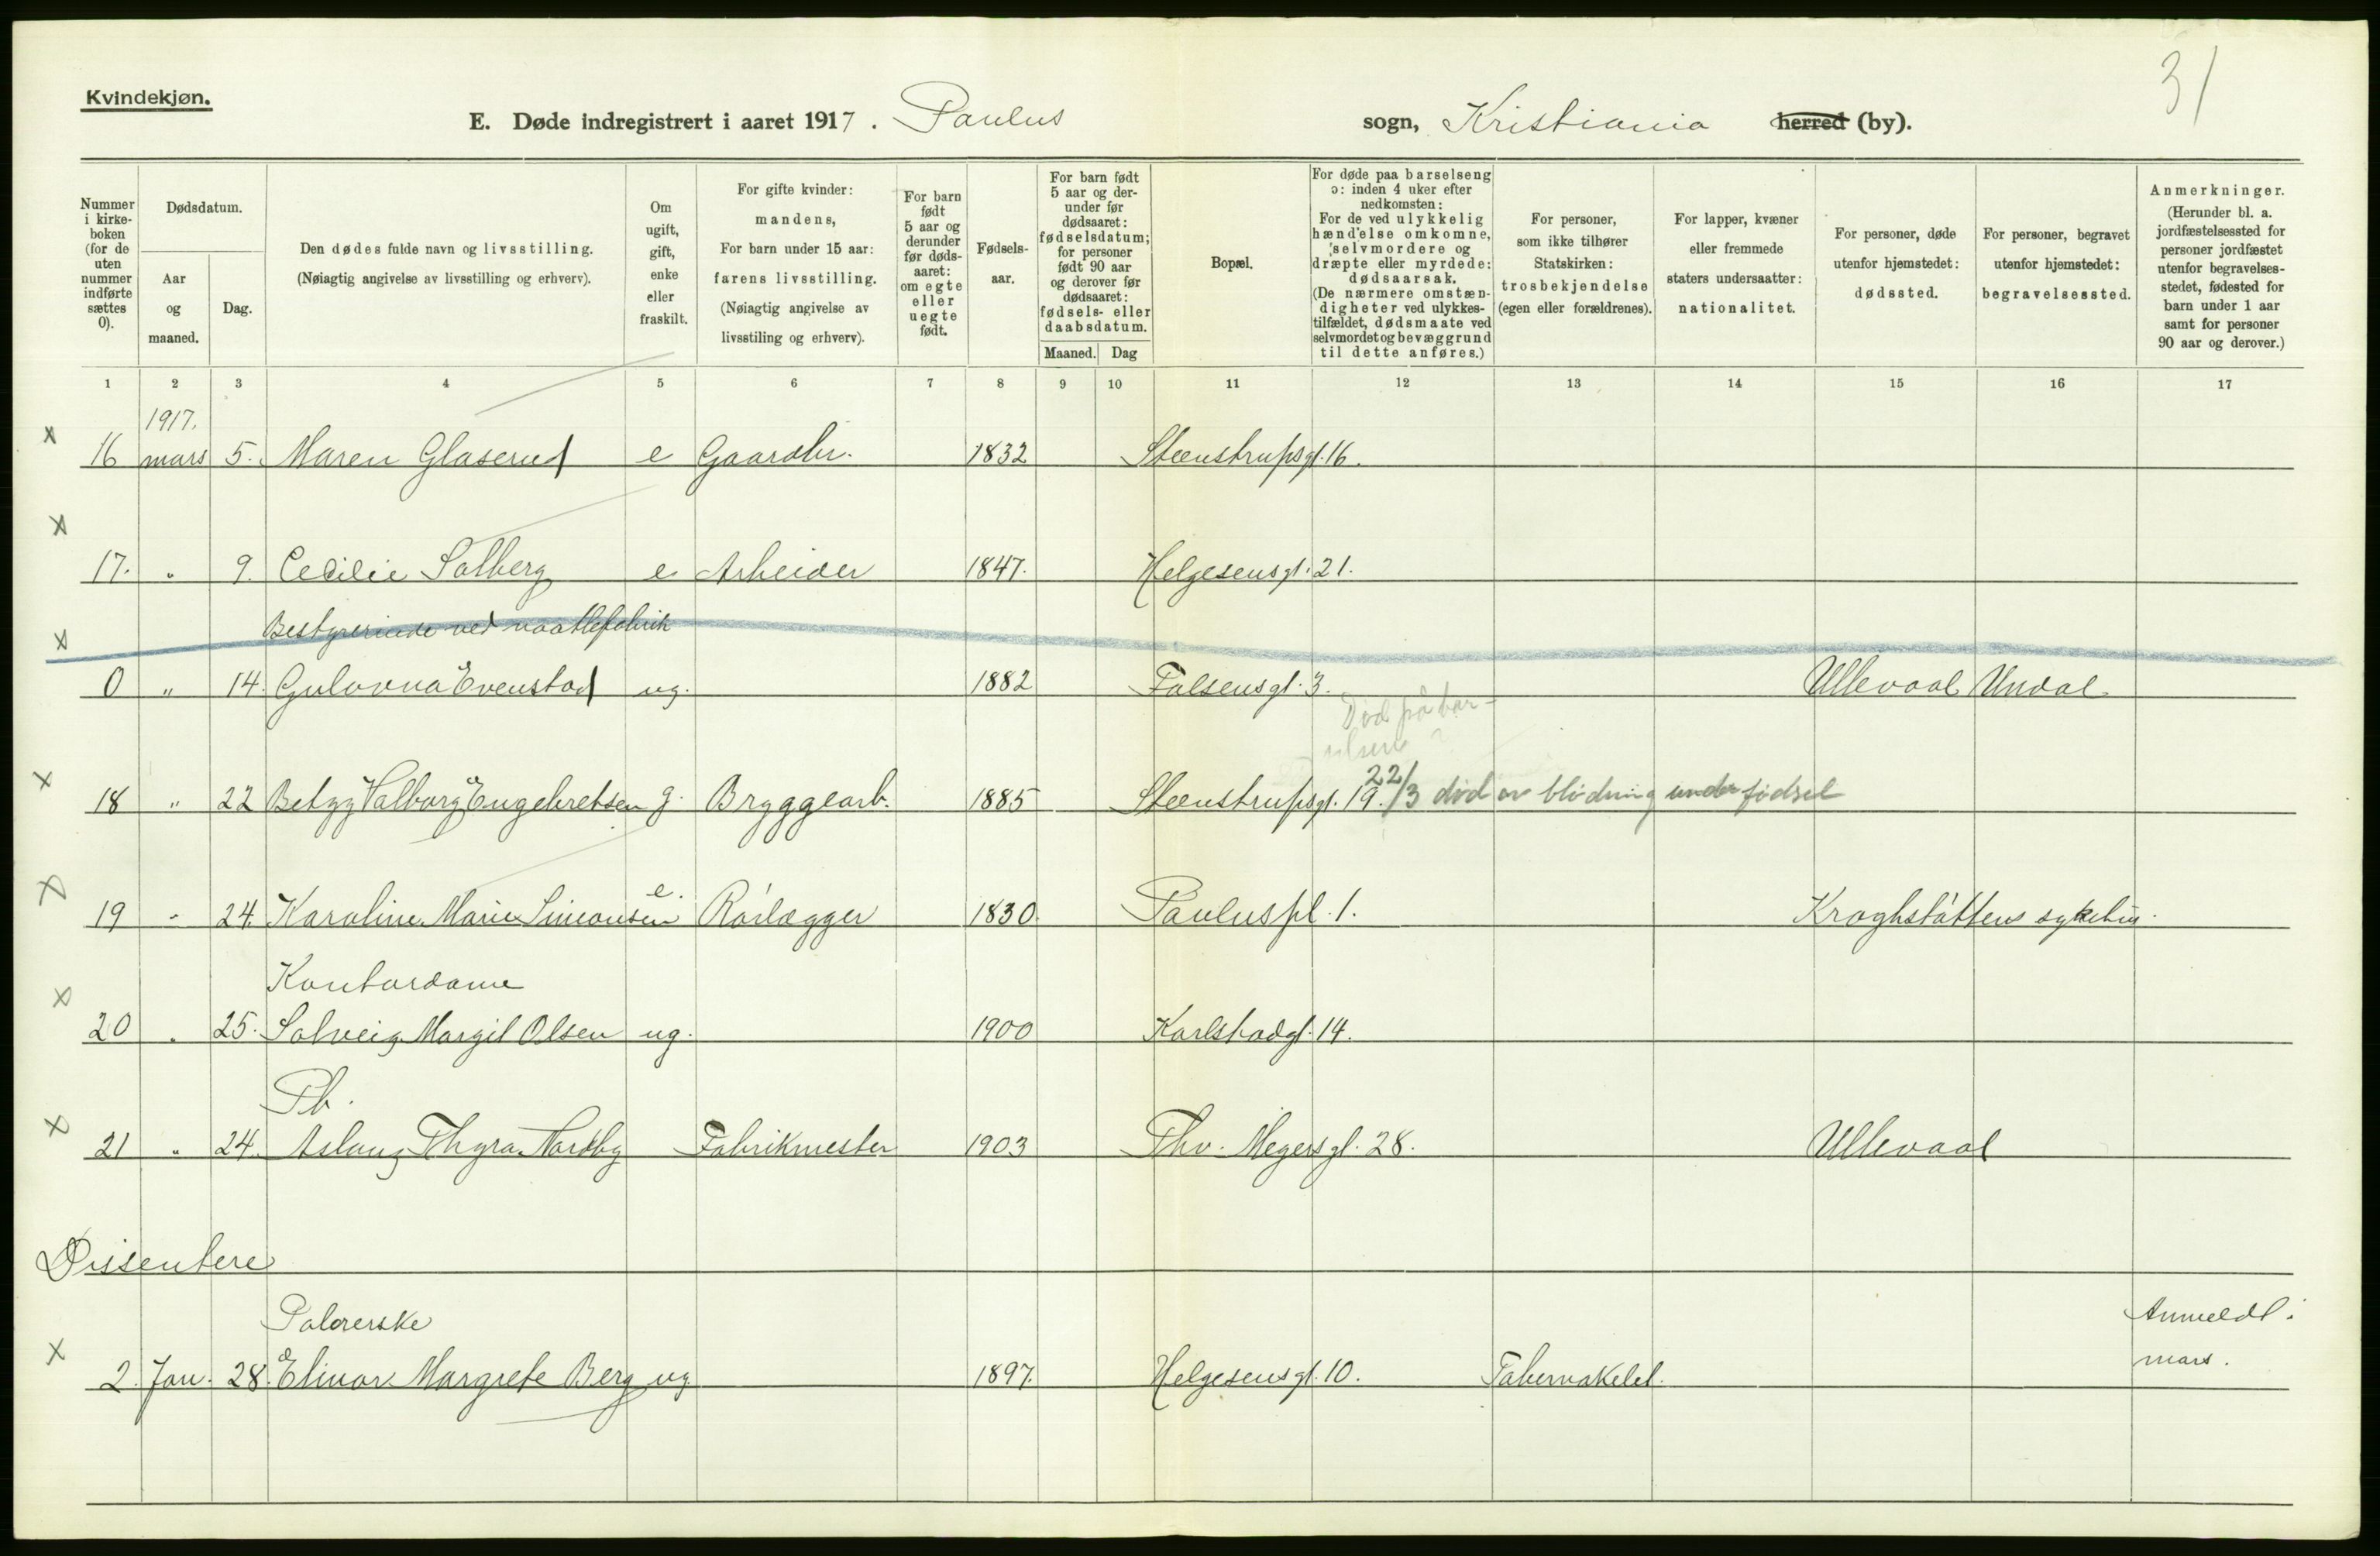 31
Kvindekjøn.
E. Døde indregistrert i aaret 1917. Paulus sogn, Kristiania herred (by).
Nummer i kirkeboken (for de uten nummer indførte sættes 0).
Dødsdatum.
Aar og maaned.
Dag.
Den dødes fulde navn og livsstilling.
(Nøiagtig angivelse av livsstilling og erhverv).
Om ugift, gift, enke eller fraskilt.
For gifte kvinder: mandens,
For barn under 15 aar: farens livsstilling.
(Nøiagtig angivelse av livsstiling og erhverv).
For barn født 5 aar og derunder før dødsaaret: om egte eller uegte født.
Fødselsaar.
For barn født 5 aar og derunder før dødsaaret: fødselsdatum; for personer født 90 aar og derover før dødsaaret: fødsels- eller daabsdatum.
Maaned. Dag
Bopæl.
For døde paa barselseng ɔ: inden 4 uker efter nedkomsten:
For de ved ulykkelig hændelse omkomne, selvmordere og dræpte eller myrdede: dødsaarsak.
(De nærmere omstændigheter ved ulykkestilfældet, dødsmaate ved selvmordet og bevæggrund til dette anføres.)
For personer, som ikke tilhører Statskirken: trosbekjendelse (egen eller forældrenes).
For lapper, kvæner eller fremmede staters undersaatter: nationalitet.
For personer, døde utenfor hjemstedet: dødssted.
For personer, begravet utenfor hjemstedet: begravelsessted.
Anmerkninger.
(Herunder bl. a. jordfæstelsessted for personer jordfæstet utenfor begravelsesstedet, fødested for barn under 1 aar samt for personer 90 aar og derover.)
1 2 3 4 5 6 7 8 9 10 11 12 13 14 15 16 17
1917.
x 16 mars 5. Maren Glaserud e Gaardbr. 1832 Steenstrupsgt. 16.
x 17. " 9. Cecilie Solberg e Arbeider 1847. Helgesensgt. 21.
Bestyrerinde ved vaattefabrik
x 0 " 14. Gulovna Evenstad ug. 1882 Falsensgt. 3. Ullevaal Undal
Død på bar-
selseng?
x 18 " 22 Betzy Valborg Engebretsen g. Bryggearb. 1885 Steenstrupsgt. 19. 22/3 død av blødning under fødsel
x 19 " 24. Karoline Marie Simonsen e. Rørlægger 1830. Pauluspl. 1. Kroghstøttens sykehus.
Kontordame
x 20 " 25. Solveig Margit Olsen ug. 1900 Karlstadgt. 14.
Pb.
x 21 " 24. Aslaug Thyra Nordby Fabrikmester 1903 Thv. Meyersgt. 28. Ullevaal
Dissentere
Polererske
Anmeldt i
mars.
x 2. Jan. 28. Elinor Margrete Berg ug. 1897. Helgesensgt. 10. Tabernaklet.